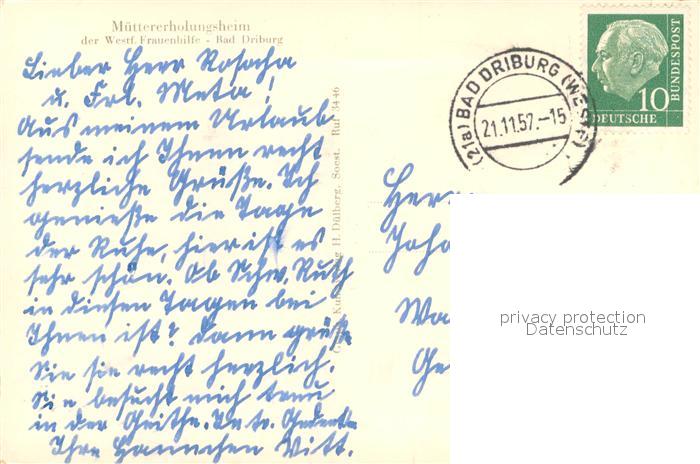 Müttererholungsheim
der Westf. Frauenhilfe - Bad Driburg
Lieber Herr Rosacha
u. Frl. Meta!
Aus meinem Urlaub
sende ich Ihnen recht
herzliche Grüße. Ich
genieße die Tage
der Ruhe, hier ist es
sehr schön. Ob Schw. Ruth
in diesen Tagen bei
Ihnen ist? Dann grüße
Sie sie recht herzlich.
Sie besucht mich
in der Geithe.
Ihre Hannchen Vitt.
H. Dülberg, Soest. Ruf 3446
(21a) BAD DRIBURG (WESTF)
21.11.57.-15
DEUTSCHE BUNDESPOST
10
Herrn
Joha
Wa
Ge
privacy protection
Datenschutz